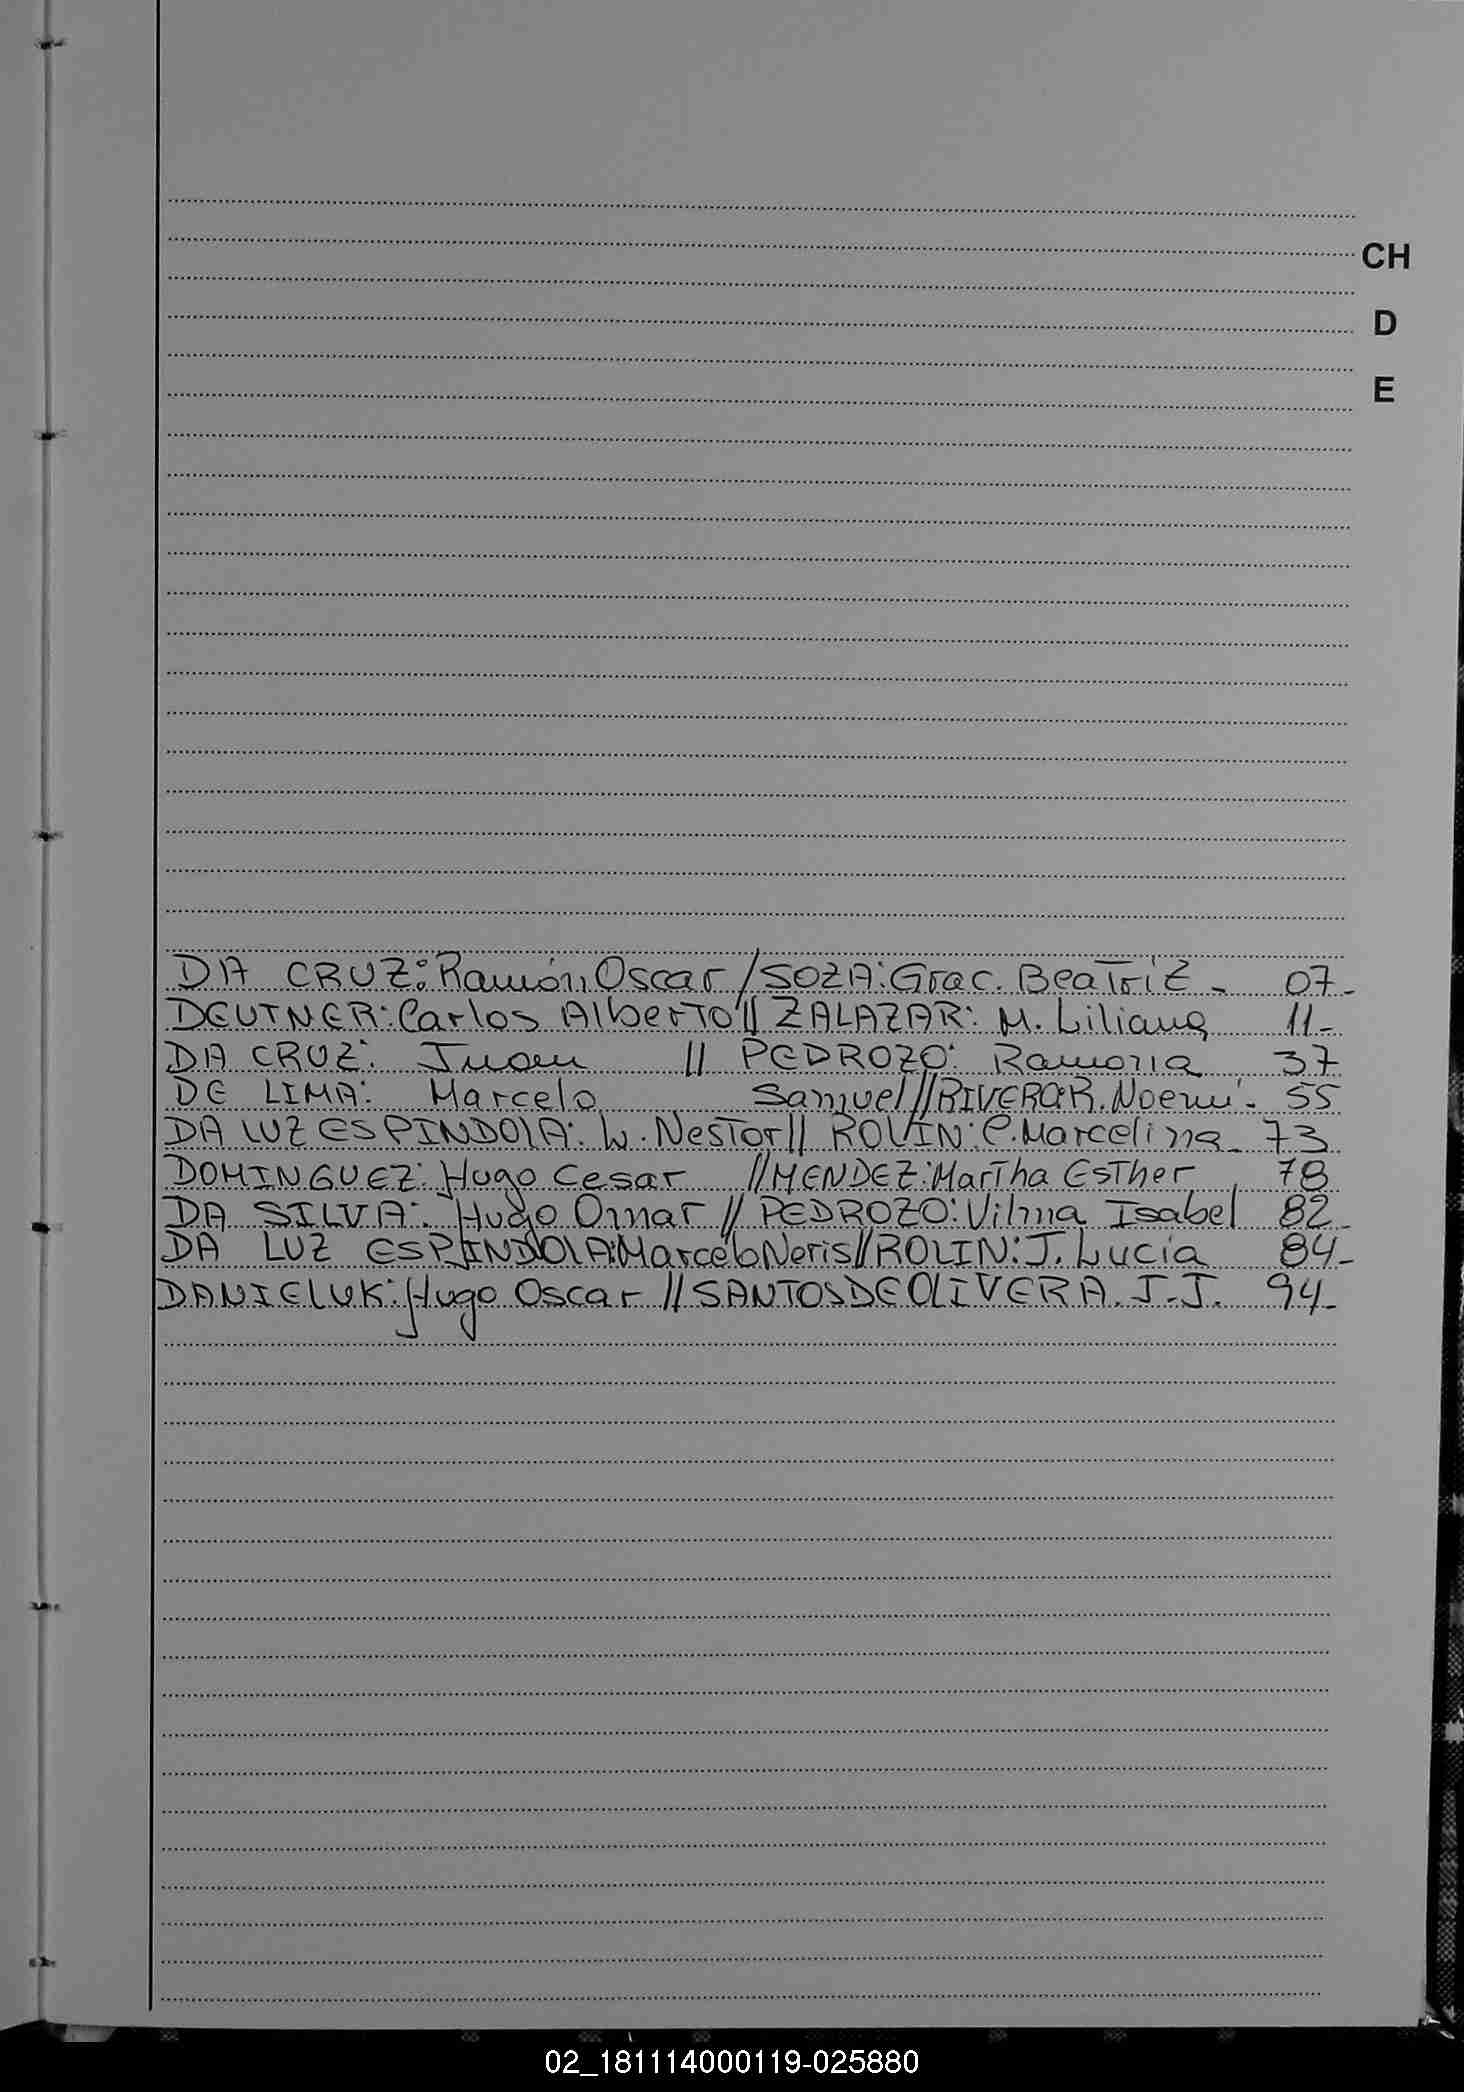 CH
D
E
DA CRUZ: Ramón Oscar / SOZA: Grac. Beatriz - 07-
DEUTNER: Carlos Alberto // ZALAZAR: M. Liliana 11-
DA CRUZ: Juan // PEDROZO: Ramona 37
DE LIMA: Marcelo Samuel // RIVERO R. Noemí - 55
DA LUZ ESPINDOlA: W. Nestor // ROLIN: C. Marcelina - 73
DOMINGUEZ: Hugo Cesar // MENDEZ: Martha Esther 78
DA SILVA: Hugo Omar // PEDROZO: Vilma Isabel 82-
DA LUZ ESPINDOlA: Marcelo Neris // ROLIN: J. Lucía 84-
DANIELUK: Hugo Oscar // SANTOS DE OLIVERA. J.J. 94-
02_181114000119-025880